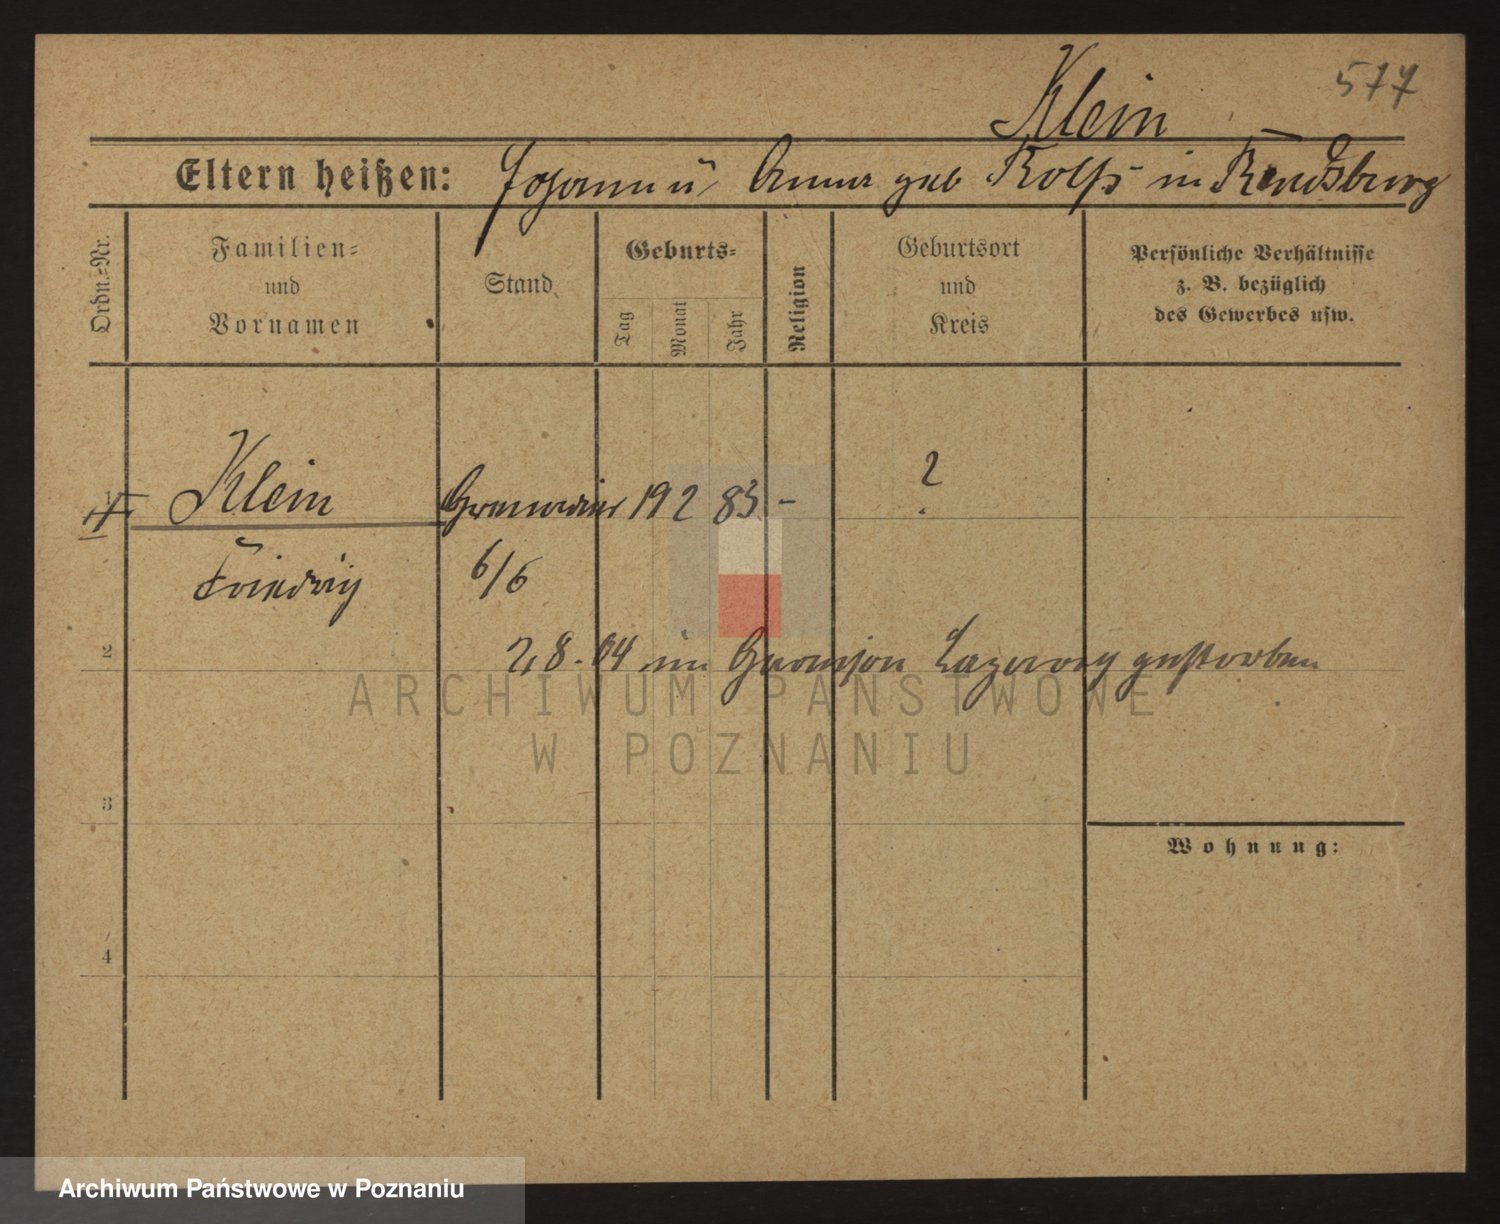 577
Klein
Eltern heißen: Johann u Anna geb Rolfs in Rendsburg
Ordn.-Nr.
Familien- und Vornamen
Stand
Geburts-
Tag
Monat
Jahr
Religion
Geburtsort und Kreis
Persönliche Verhältnisse z. B. bezüglich des Gewerbes usw.
1
Klein
Grenadier 19 2 83 - ?
Friedrich
6/6
2
2.8.04 im Garnison Lazareth gestorben
ARCHIWUM PAŃSTWOWE
W POZNANIU
3
Wohnung:
4
Archiwum Państwowe w Poznaniu